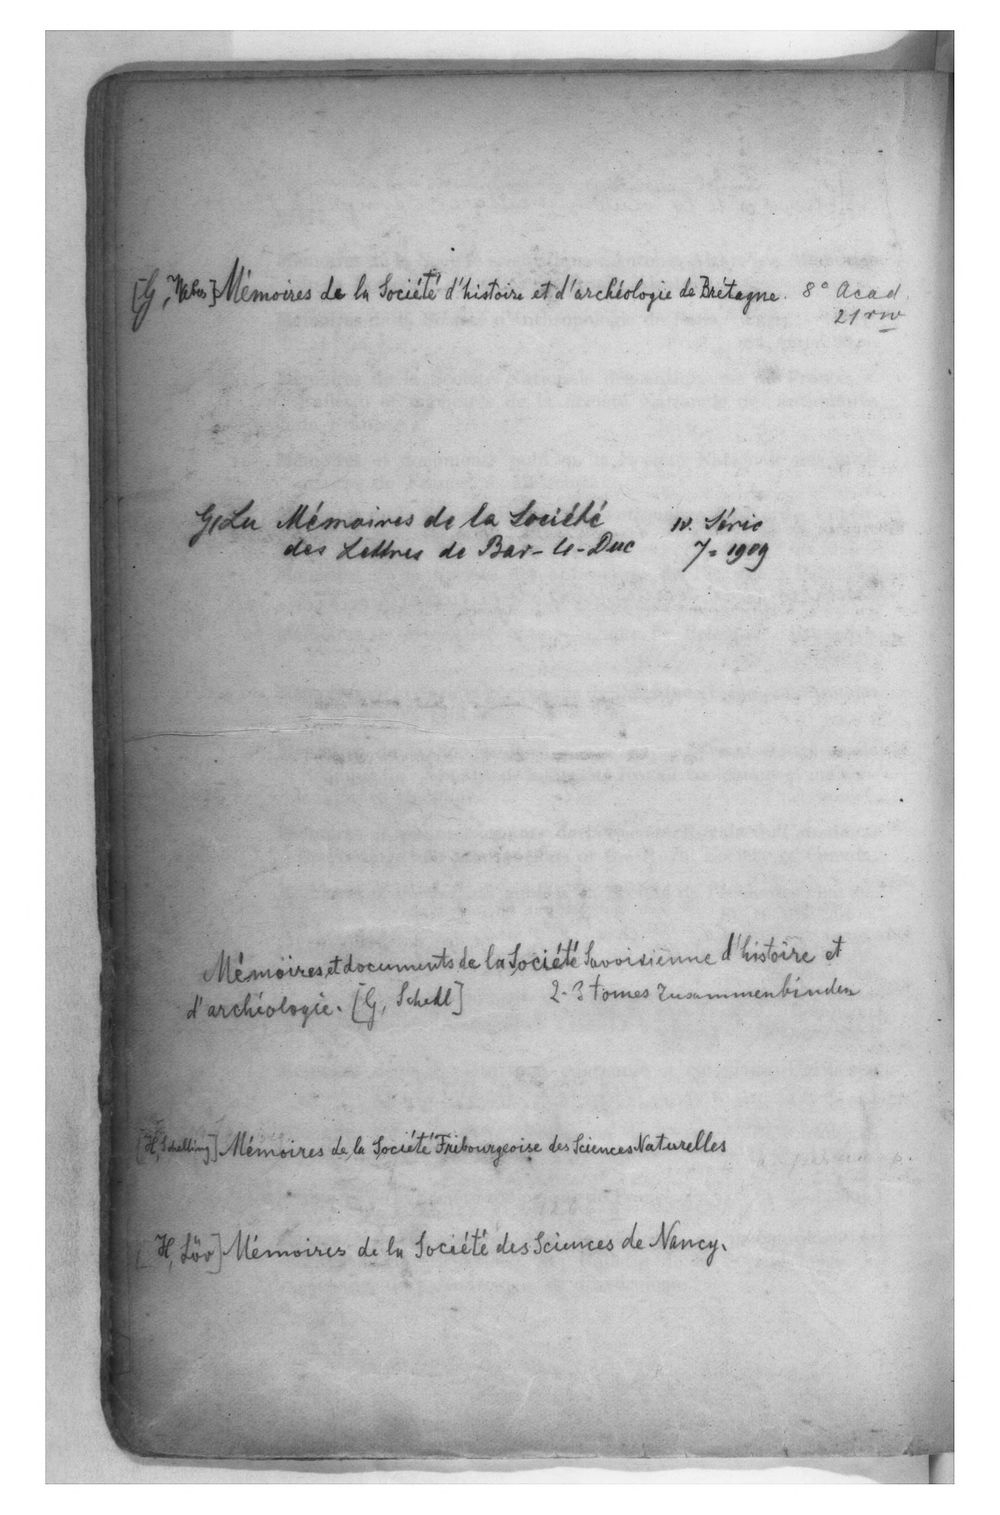 [G, Weber] Mémoires de la Société d'histoire et d'archéologie de Bretagne. 8° Acad.
21 rw
G, Lu Mémoires de la Société IV. Série
des Lettres de Bar-le-Duc 7 = 1909
Mémoires et documents de la Société Savoisienne d'histoire et
d'archéologie. [G, Schedl] 2-3 tomes zusammenbinden
[H, Schelling] Mémoires de la Société Fribourgeoise des Sciences Naturelles
[H, Löv] Mémoires de la Société des Sciences de Nancy.